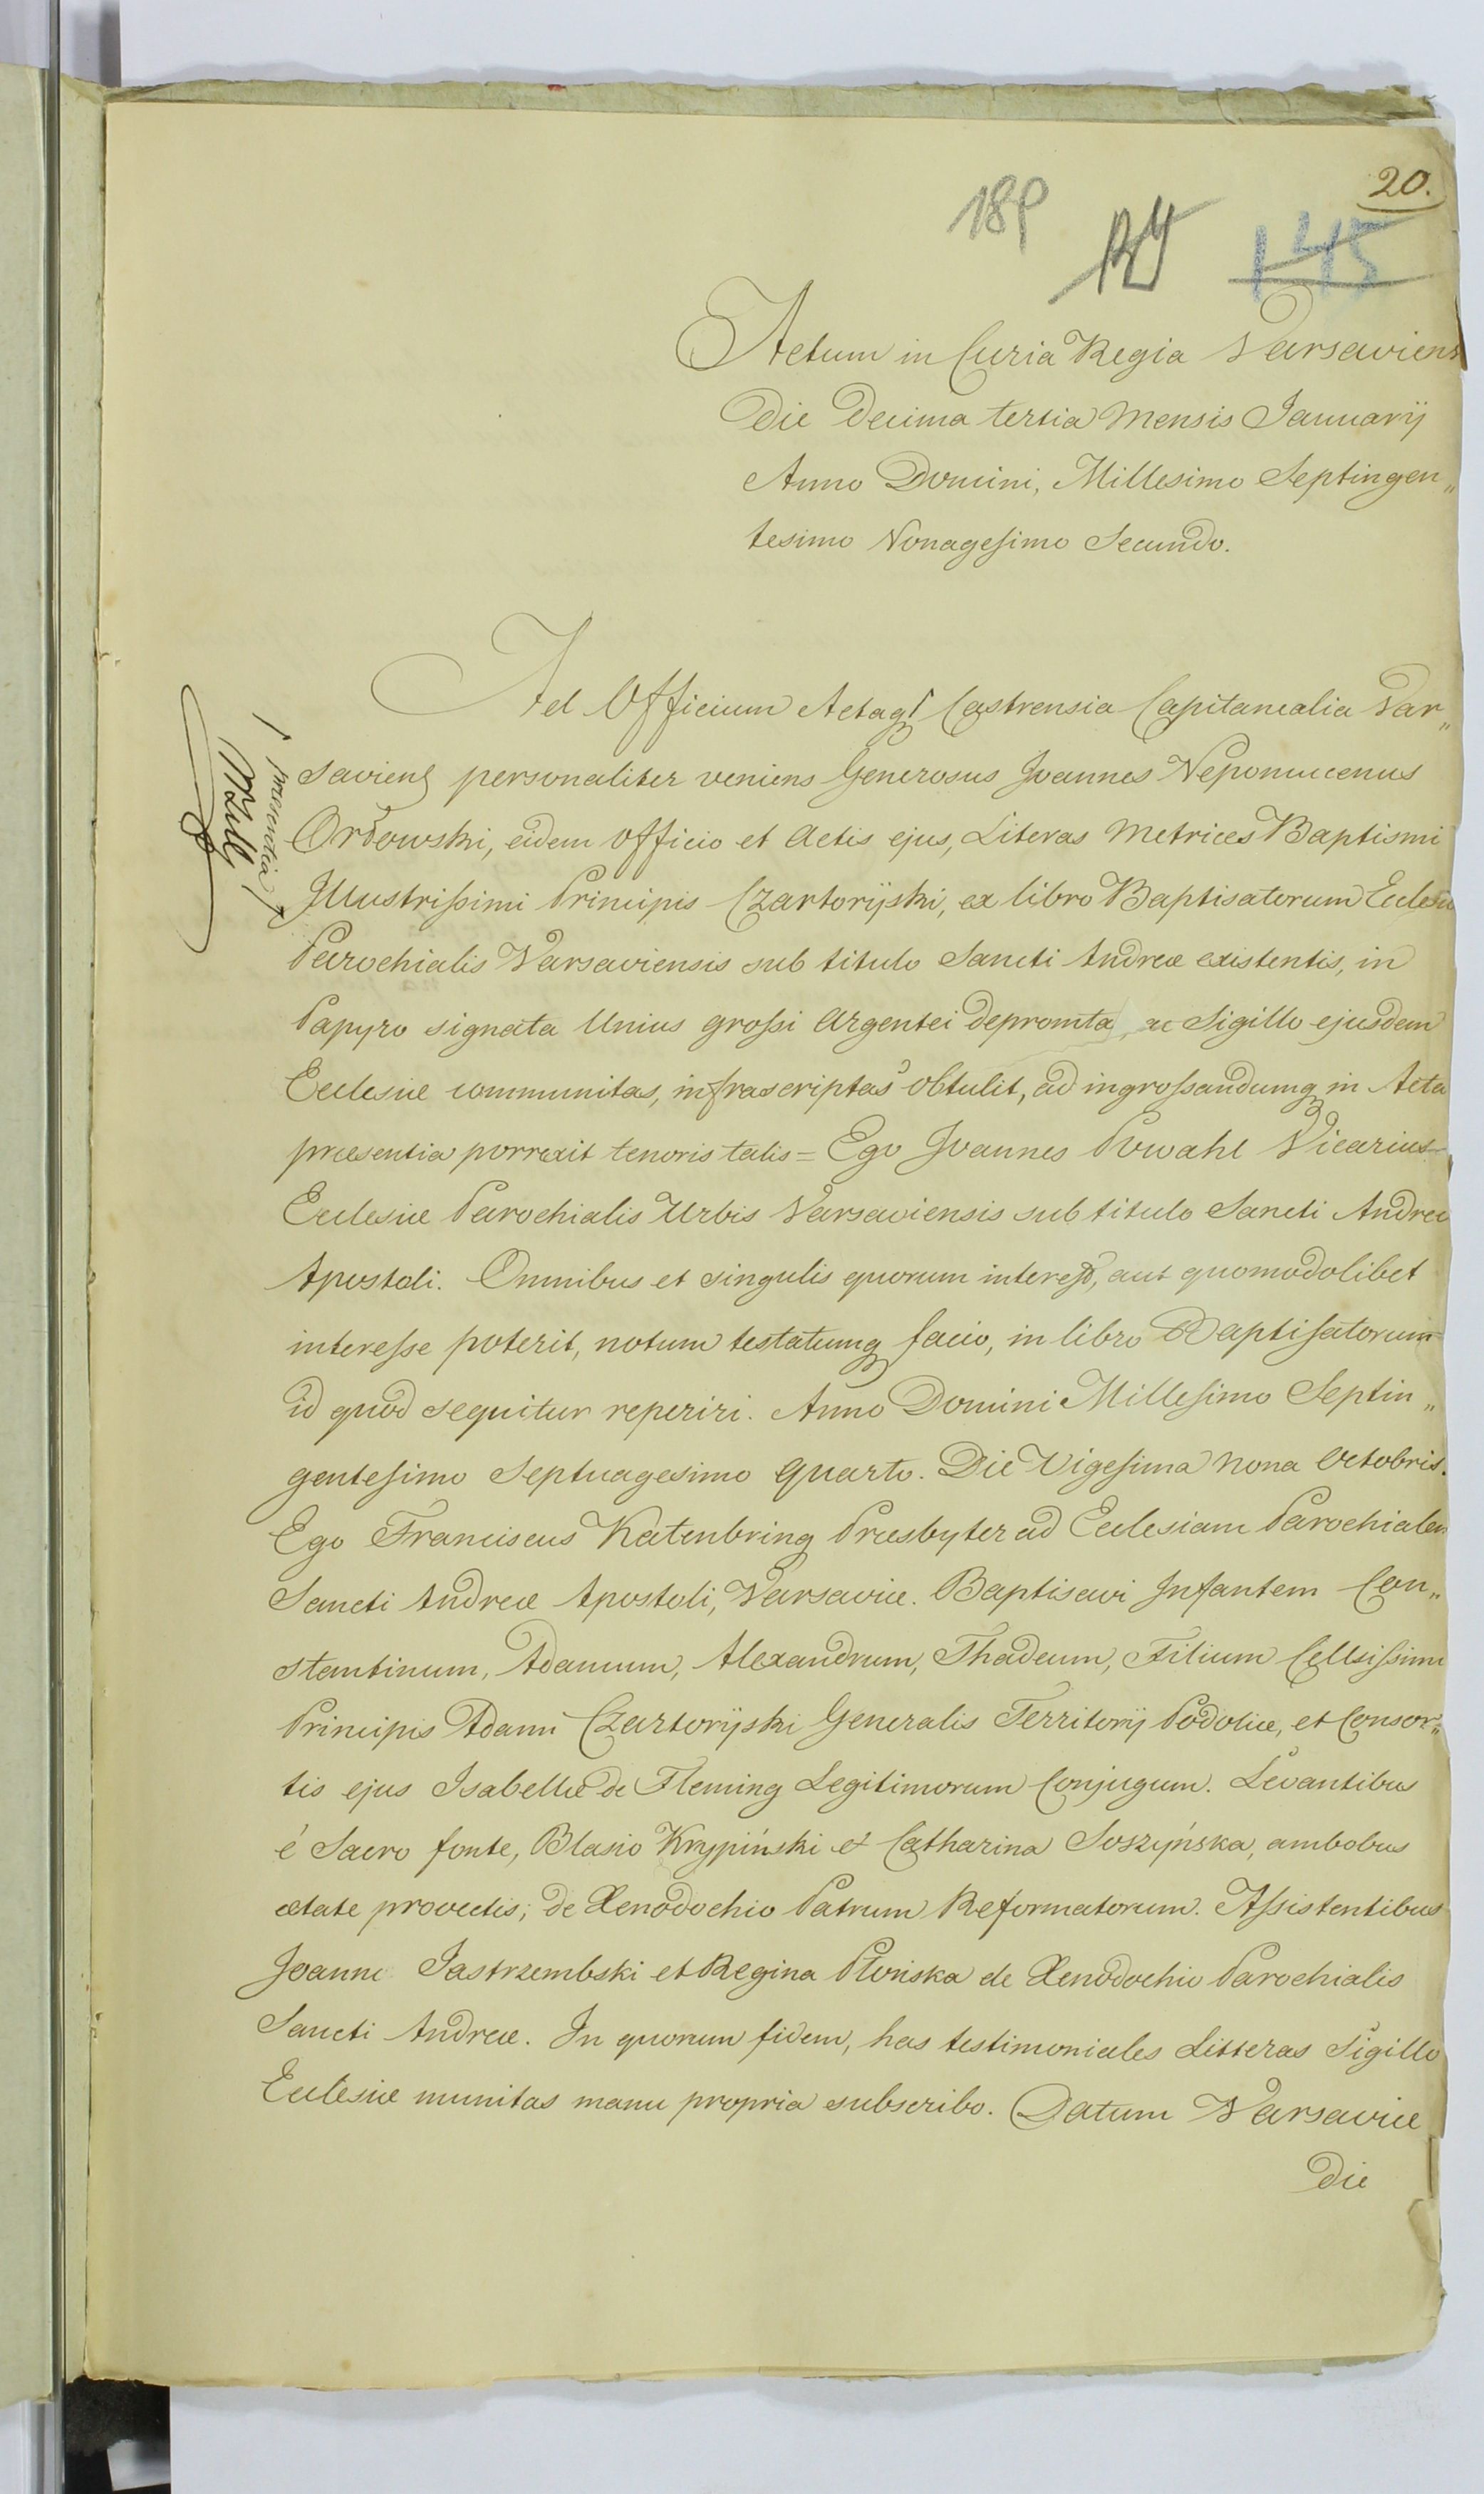 20.
189
145
Actum in Curia Regia Varsaviens
Die Decima tertia Mensis Januarij
Anno Domini, Millesimo Septingen„
tesimo Nonagesimo Secundo.
Ad Officium Actaq Castrensia Capitanealia Var„
saviens personaliter veniens Generosus Joannes Nepomucenus
Orłowski, eidem officio et Actis ejus, Literas Metrices Baptismi
Illustrissimi Principis Czartoryski, ex libro Baptisatorum Ecclesiæ
Parochialis Varsaviensis sub titulo Sancti Andreæ existentis, in
Papyro signata Unius grossi Argentei depromta, ac Sigillo ejusdem
Ecclesiæ communitas, infrascriptas obtulit, ad ingrossandumq in Acta
præsentia porrexit tenoris talis = Ego Joannes Powahl Vicarius
Ecclesiæ Parochialis Urbis Varsaviensis sub titulo Sancti Andreæ
Apostoli. Omnibus et singulis quorum interest, aut quomodolibet
interesse poterit, notum testatumq facio, in libro Baptisatorum
id quod sequitur reperiri. Anno Domini Millesimo Septin„
gentesimo Septuagesimo quarto. Die Vigesima nona Octobris.
Ego Franciscus Katenbring Præsbyter ad Ecclesiam Parochialem
Sancti Andreæ Apostoli, Varsaviæ. Baptisavi Infantem Con„
stantinum, Adamum, Alexandrum, Thadeum, Filium Cellsissimi
Principis Adami Czartoryski Generalis Territorij Podoliæ, et Consor„
tis ejus Isabellæ de Fleming Legitimorum Conjugum. Levantibus
é Sacro fonte, Blasio Krypiński et Catharina Soszyńska, ambobus
ætate provectis; de Xenodochio Patrum Reformatorum. Assistentibus
Joanne Jastrzembski et Regina Płońska de Xenodochio Parochialis
Sancti Andreæ. In quorum fidem, has testimoniales Litteras Sigillo
Ecclesiæ munitas manu propria subscribo. Datum Varsaviæ
Die
præsentia